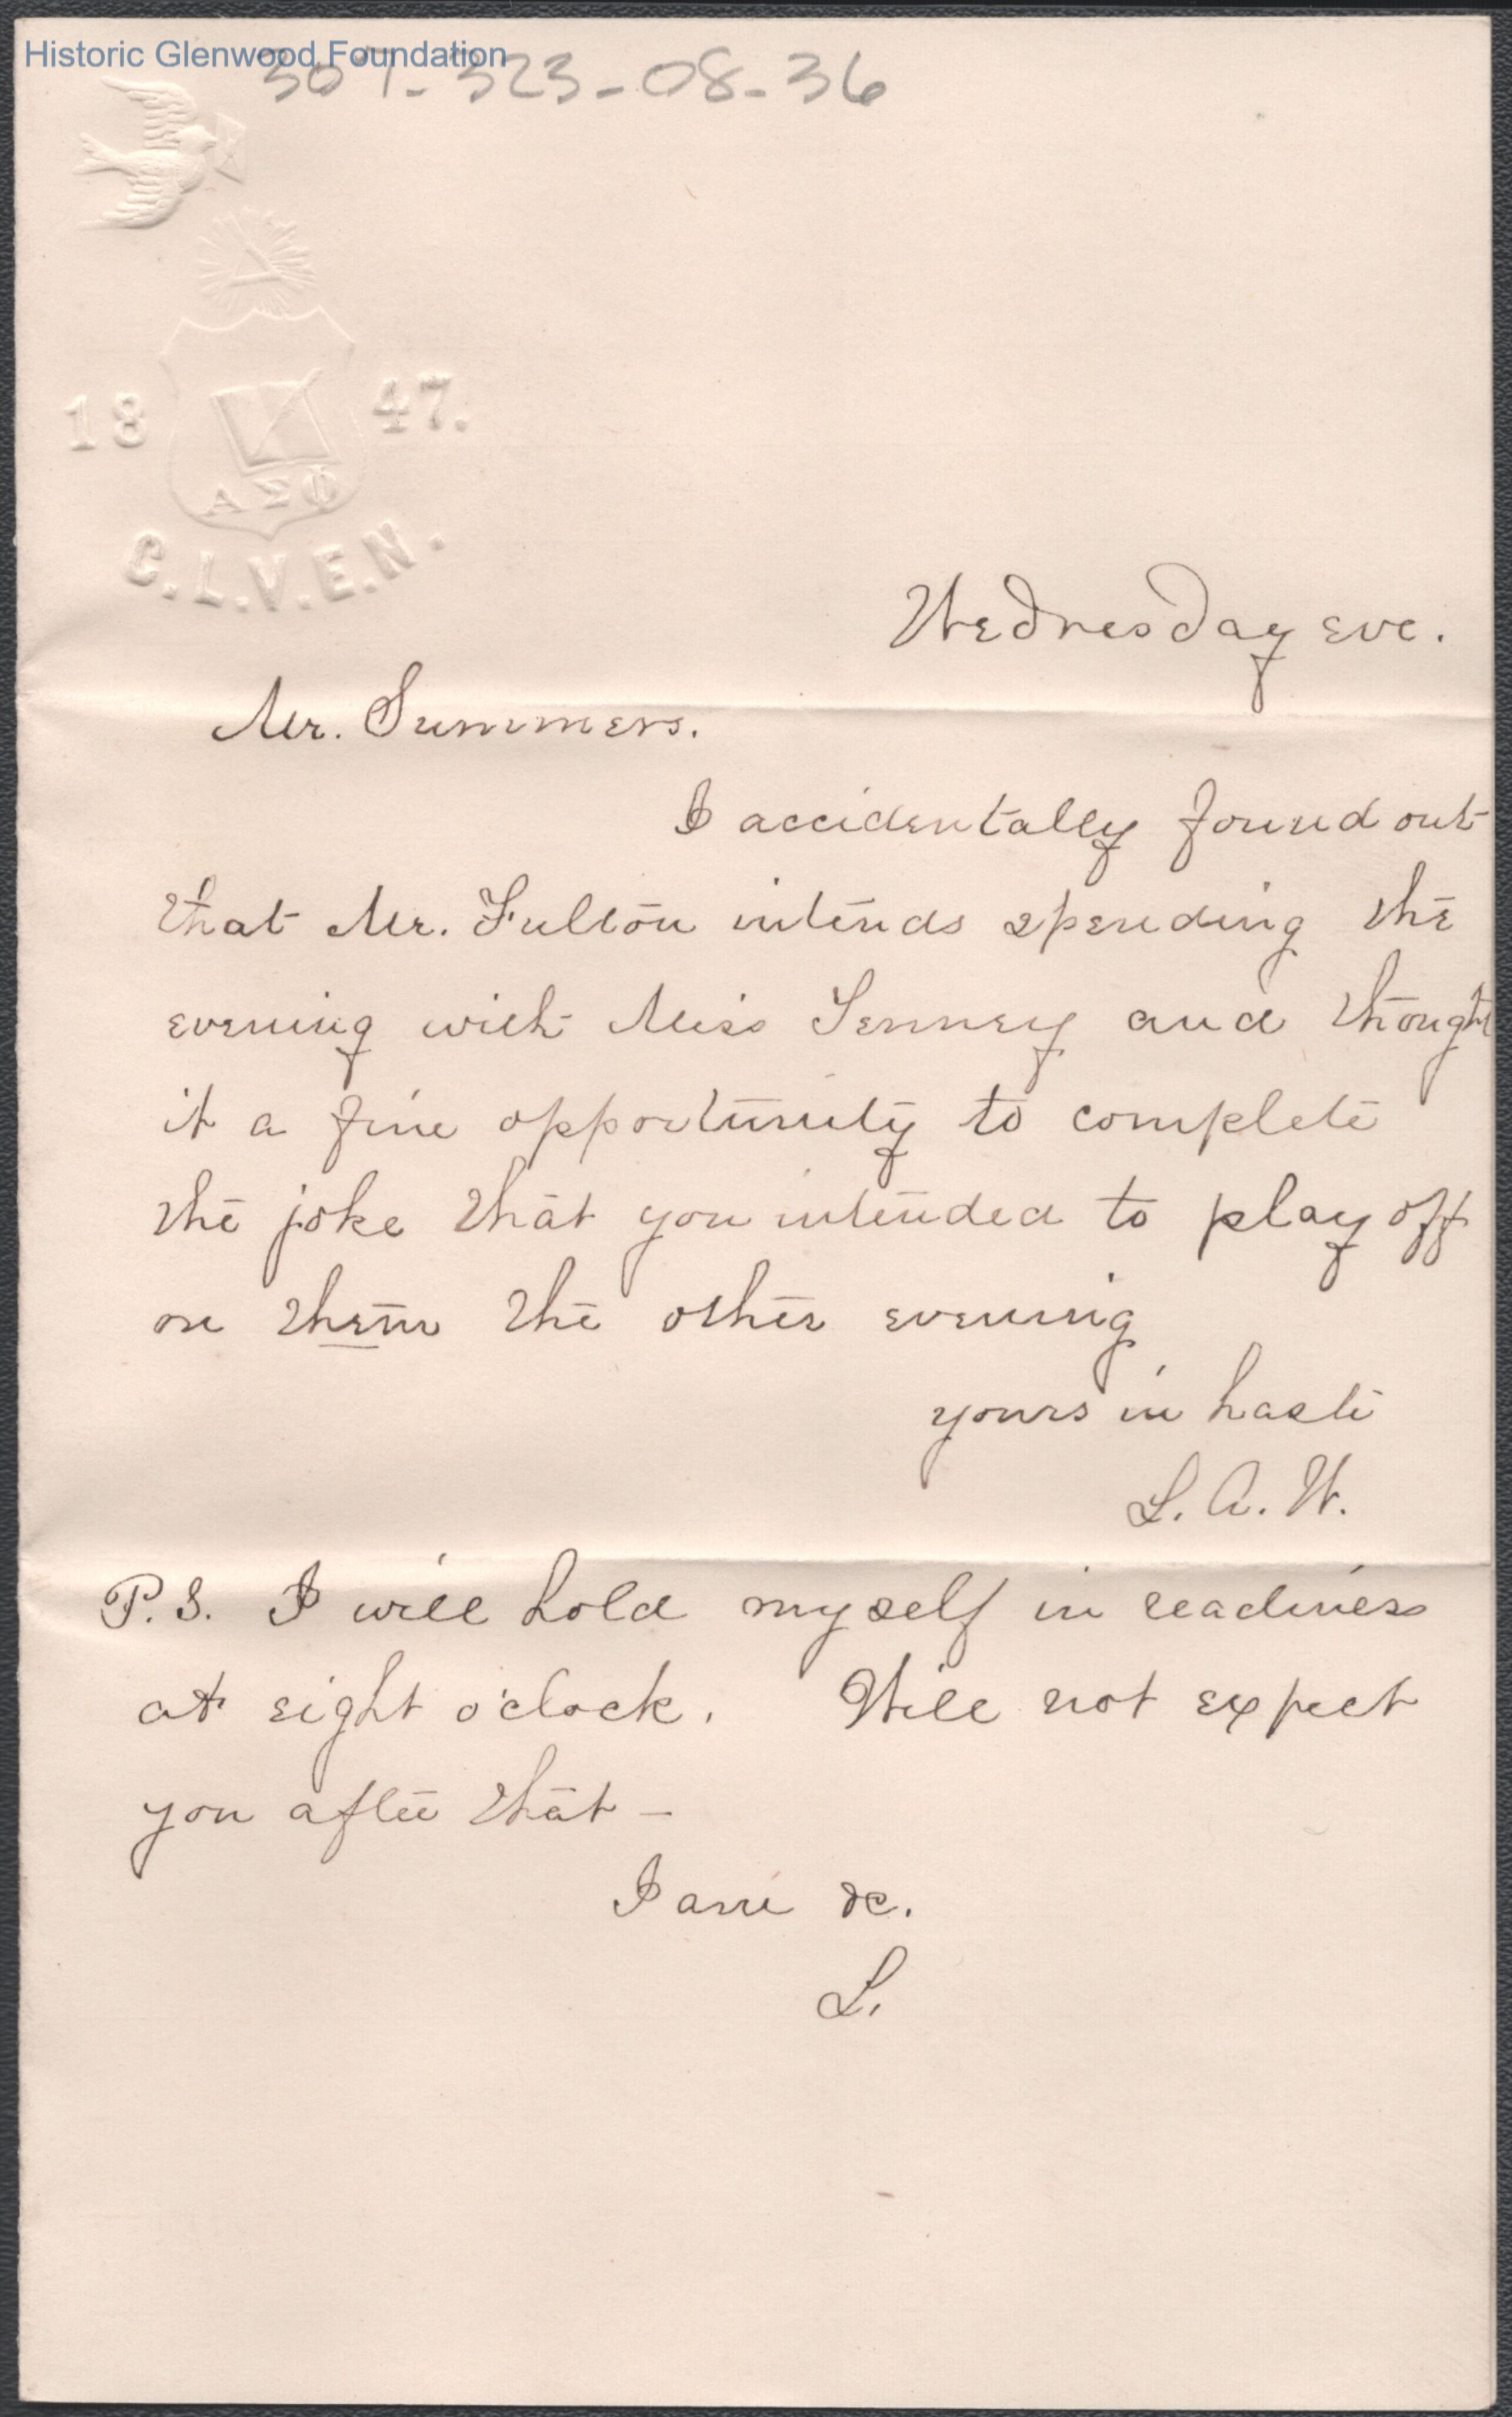 Historic Glenwood Foundation
307-323-08-36
18 47.
ΑΣΦ
C.L.V.E.N.
Wednesday eve.
Mr. Summers.
I accidentally found out
that Mr. Fulton intends spending the
evening with Miss Tenney and thought
it a fine opportunity to complete
the joke that you intended to play off
on them the other evening
yours in haste
L. A. W.
P.S. I will hold myself in readiness
at eight o'clock. Will not expect
you after that –
I am &c.
L.